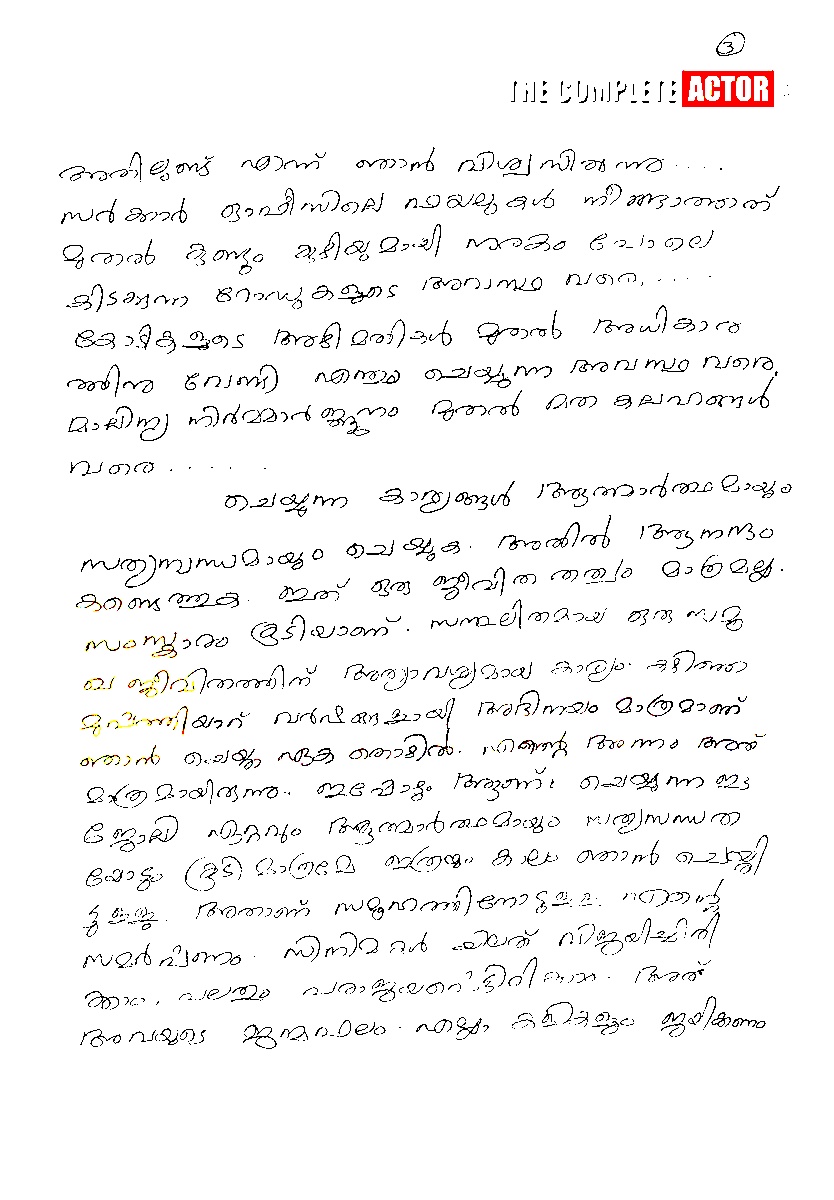 3
THE COMPLETE ACTOR
അതിലുണ്ട് എന്ന് ഞാൻ വിശ്വസിക്കുന്നു ....
സർക്കാർ ഓഫീസിലെ ഫയലുകൾ നീങ്ങാത്തത്
മുതൽ കുണ്ടും കുഴിയുമായി നരകം പോലെ
കിടക്കുന്ന റോഡുകളുടെ അവസ്ഥ വരെ. ....
കോഴികളുടെ അഴിമതികൾ മുതൽ അധികാര
ത്തിനു വേണ്ടി എന്തും ചെയ്യുന്ന അവസ്ഥ വരെ.
മാലിന്യ നിർമ്മാർജ്ജനം മുതൽ മത കലഹങ്ങൾ
വരെ ......
ചെയ്യുന്ന കാര്യങ്ങൾ ആത്മാർത്ഥമായും
സത്യസന്ധമായും ചെയ്യുക. അതിൽ ആനന്ദം
കണ്ടെത്തുക. ഇത് ഒരു ജീവിത തത്വം മാത്രമല്ല.
സംസ്കാരം കൂടിയാണ്. സന്തുലിതമായ ഒരു സമൂ
ഹ ജീവിതത്തിന് അത്യാവശ്യമായ കാര്യം. കഴിഞ്ഞ
മുപ്പത്തിയാറ് വർഷങ്ങളായി അഭിനയം മാത്രമാണ്
ഞാൻ ചെയ്ത ഏക തൊഴിൽ. എന്റെ അന്നം അത്
മാത്രമായിരുന്നു. ഇപ്പോഴും ആണ്. ചെയ്യുന്ന ഈ
ജോലി ഏറ്റവും ആത്മാർത്ഥമായും സത്യസന്ധത
യോടും കൂടി മാത്രമേ ഇത്രയും കാലം ഞാൻ ചെയ്തി
ട്ടുള്ളൂ. അതാണ് സമൂഹത്തിനോടുള്ള എന്റെ
സമർപ്പണം. സിനിമകൾ ചിലത് വിജയിച്ചിരി
ക്കാം, പലതും പരാജയപ്പെട്ടിരിക്കാം. അത്
അവയുടെ ജന്മഫലം. എല്ലാ കളികളും ജയിക്കണം